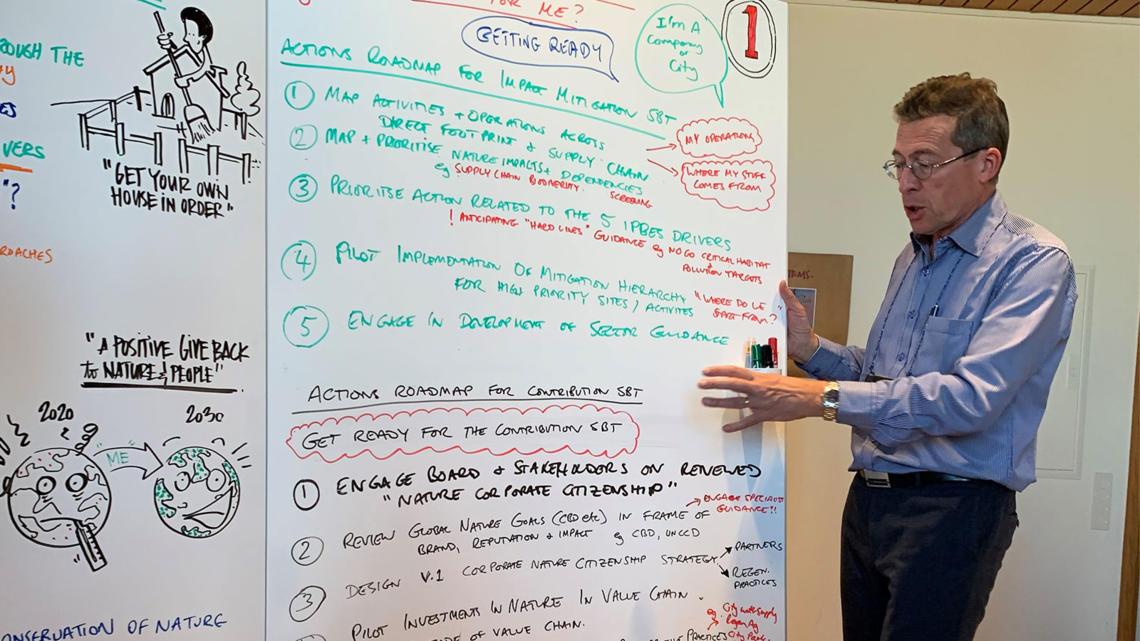 ROUGH THE
"GET YOUR OWN
HOUSE IN ORDER"
VERS
"?
ROACHES
"A POSITIVE GIVE BACK
to NATURE & PEOPLE"
2020
2030
ME
ONSERVATION OF NATURE
FOR ME?
GETTING READY
I'm A
Company
or
City
1
ACTIONS ROADMAP FOR IMPACT MITIGATION SBT
1 MAP ACTIVITIES + OPERATIONS ACROSS
DIRECT FOOTPRINT & SUPPLY CHAIN
MY OPERATIONS
WHERE MY STUFF
COMES FROM
2 MAP + PRIORITISE NATURE IMPACTS + DEPENDENCIES
eg SUPPLY CHAIN BIODIVERSITY SCREENING
3 PRIORITISE ACTION RELATED TO THE 5 IPBES DRIVERS
! ANTICIPATING "HARD LINES" GUIDANCE eg NO GO CRITICAL HABITAT
+ POLLUTION TARGETS
4 PILOT IMPLEMENTATION OF MITIGATION HIERARCHY
FOR HIGH PRIORITY SITES / ACTIVITES
"WHERE DO WE
START FROM?"
5 ENGAGE IN DEVELOPMENT OF SECTOR GUIDANCE
ACTIONS ROADMAP FOR CONTRIBUTION SBT
GET READY FOR THE CONTRIBUTION SBT
1 ENGAGE BOARD & STAKEHOLDERS ON RENEWED
"NATURE CORPORATE CITIZENSHIP"
2 REVIEW GLOBAL NATURE GOALS (CBD etc) IN FRAME OF
BRAND, REPUTATION + IMPACT eg CBD, UNCCD
ENGAGE SPECIALIST
GUIDANCE!!
3 DESIGN V.1 CORPORATE NATURE CITIZENSHIP STRATEGY
PARTNERS
REGEN.
PRACTICES
PILOT INVESTMENTS IN NATURE IN VALUE CHAIN.
OF VALUE CHAIN.
PRACTICES
eg. City water supply
Regen Ag
City Parks